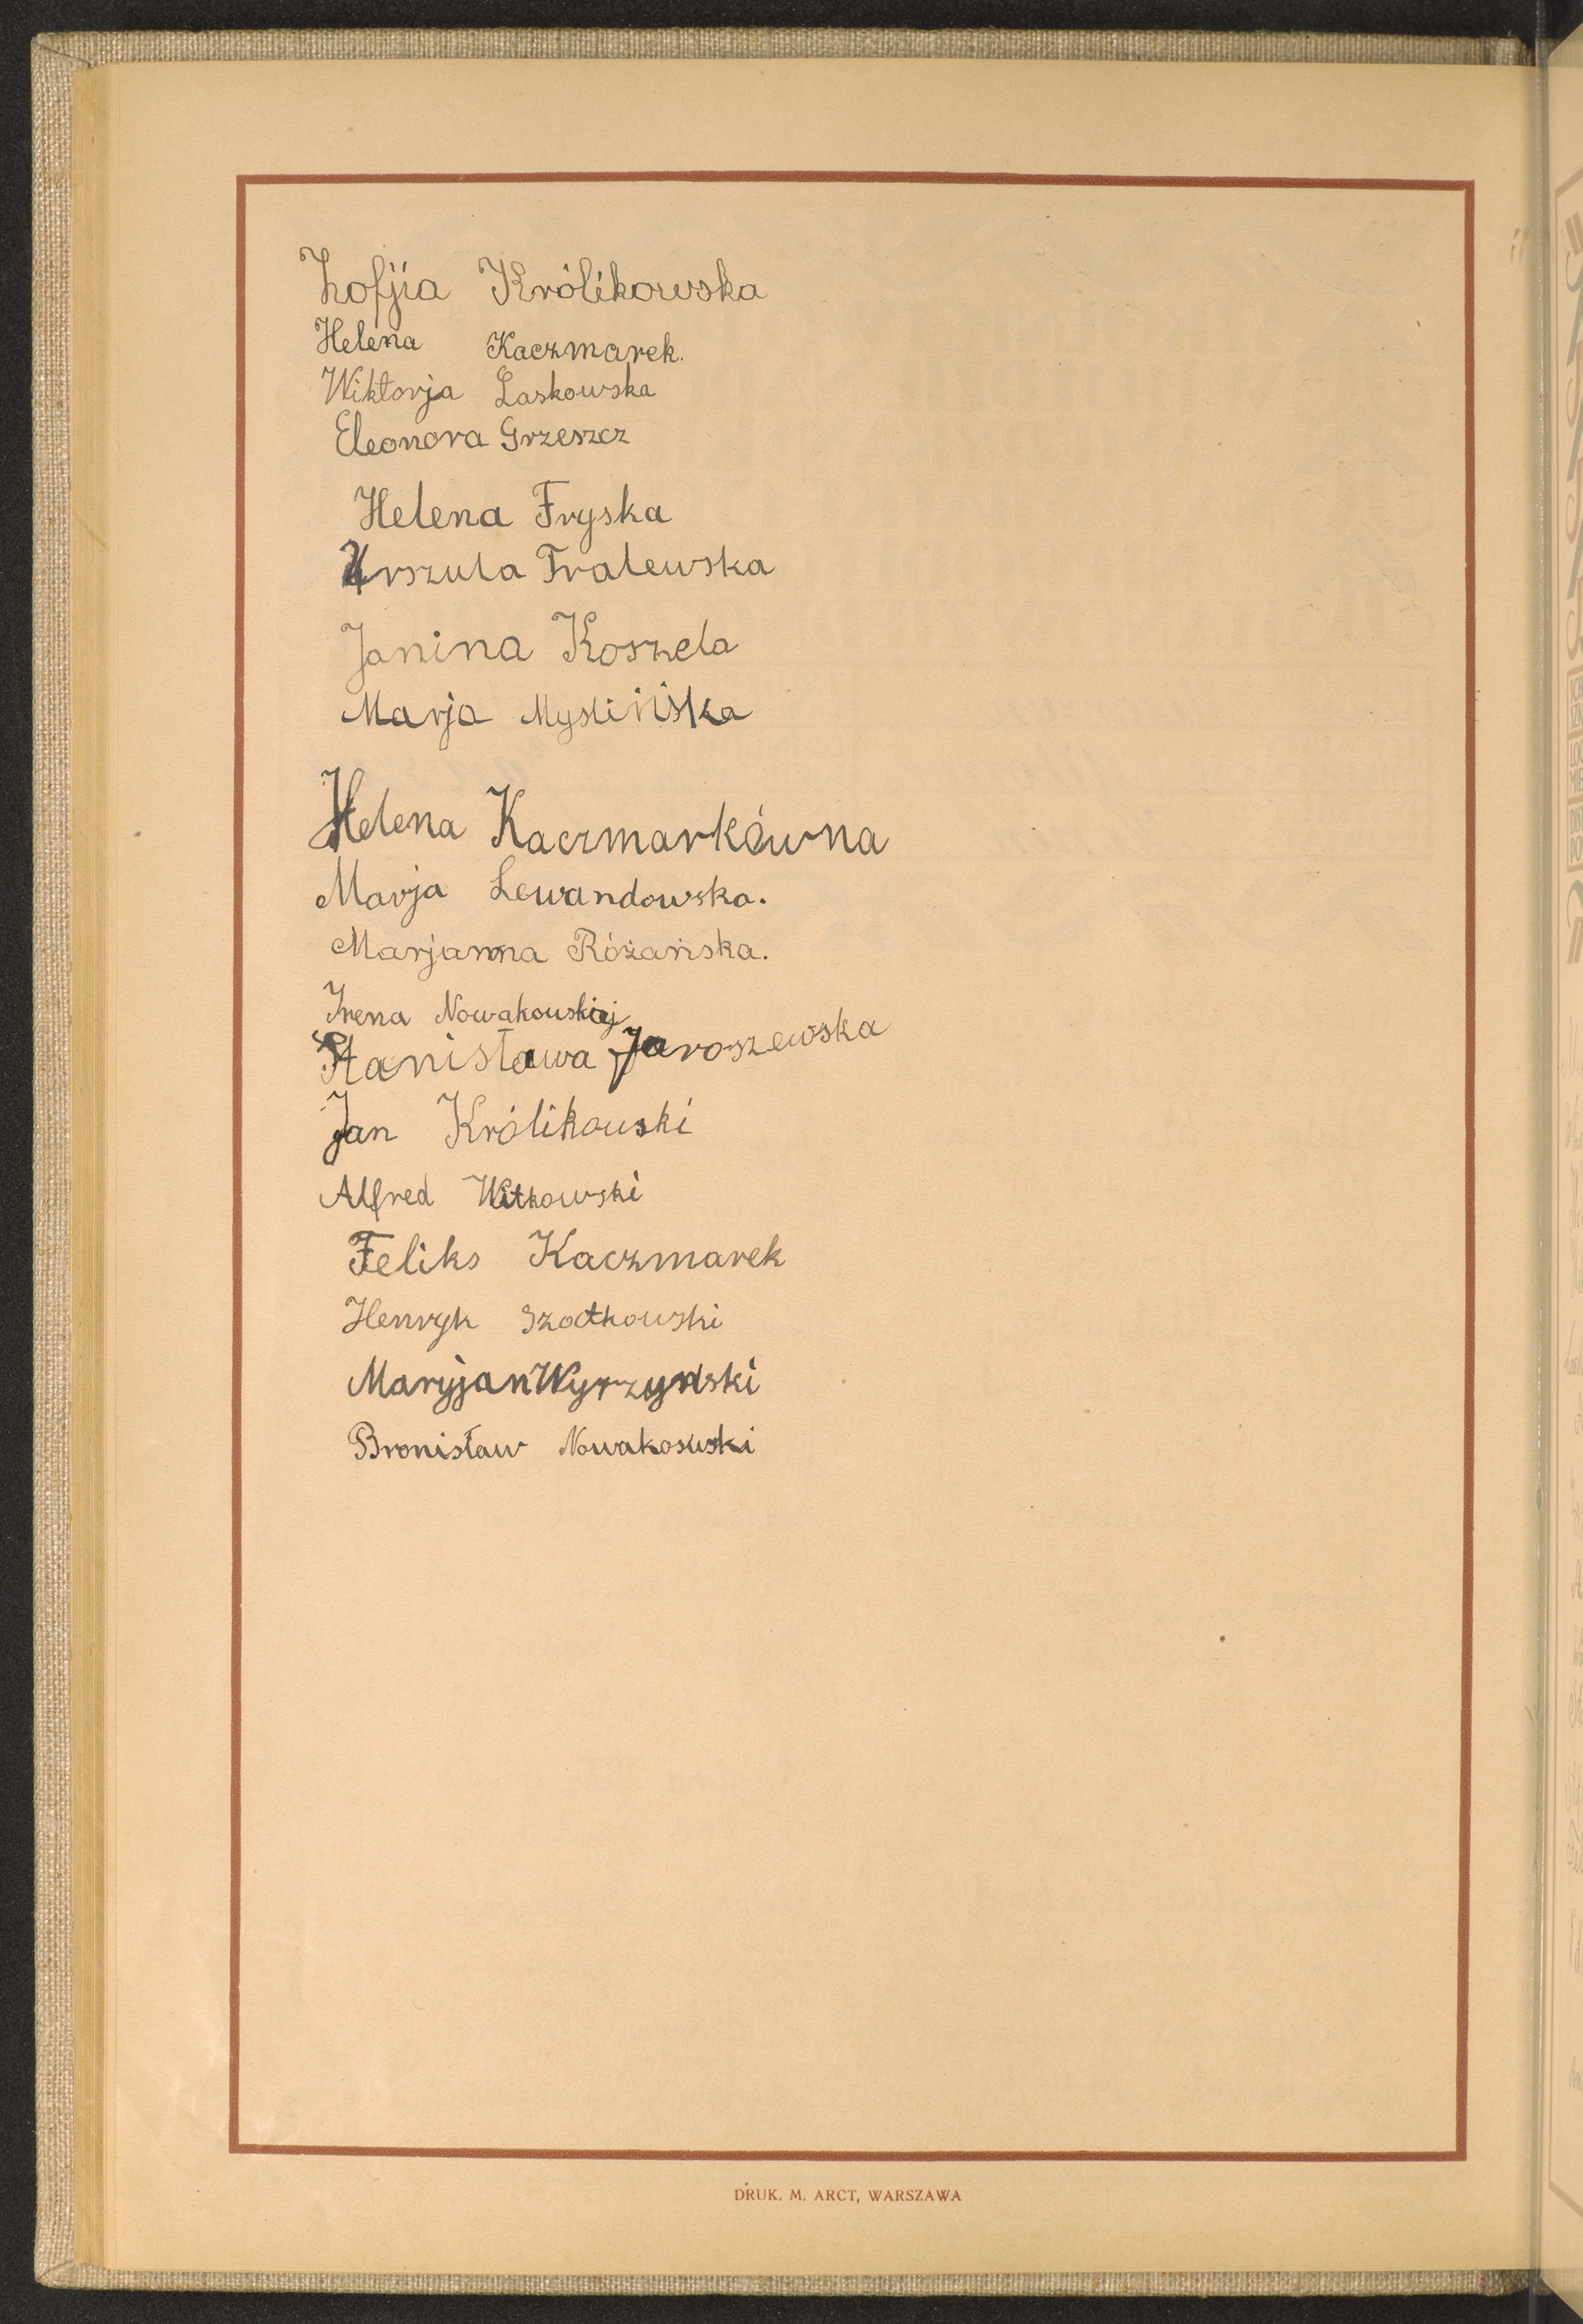 Zofjia Królikowska
Helena Kaczmarek.
Wiktorja Laskowska
Eleonora Grzeszcz
Helena Fryska
Urszula Fralewska
Janina Koszela
Marja Myslińska
Helena Kaczmarkówna
Marja Lewandowska.
Marjanna Różańska.
Irena Nowakowskiej
Stanisława Jaroszewska
Jan Królikowski
Alfred Witkowski
Feliks Kaczmarek
Henryk Szoctkowski
Maryjan Wyrzynski
Bronisław Nowakoswski
DRUK. M. ARCT, WARSZAWA